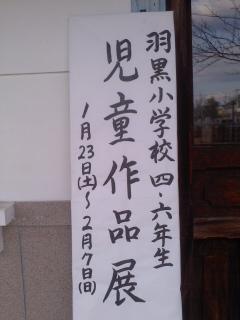 羽黒小学校 四・六年生
児童作品展
1月23日(土)～2月7日(日)